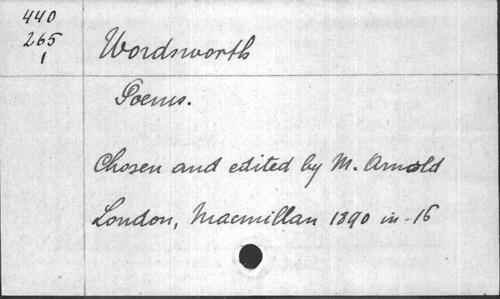 440
265
1
Wordsworth
Poems.
Chosen and edited by M. Arnold
London, Macmillan 1890 in-16